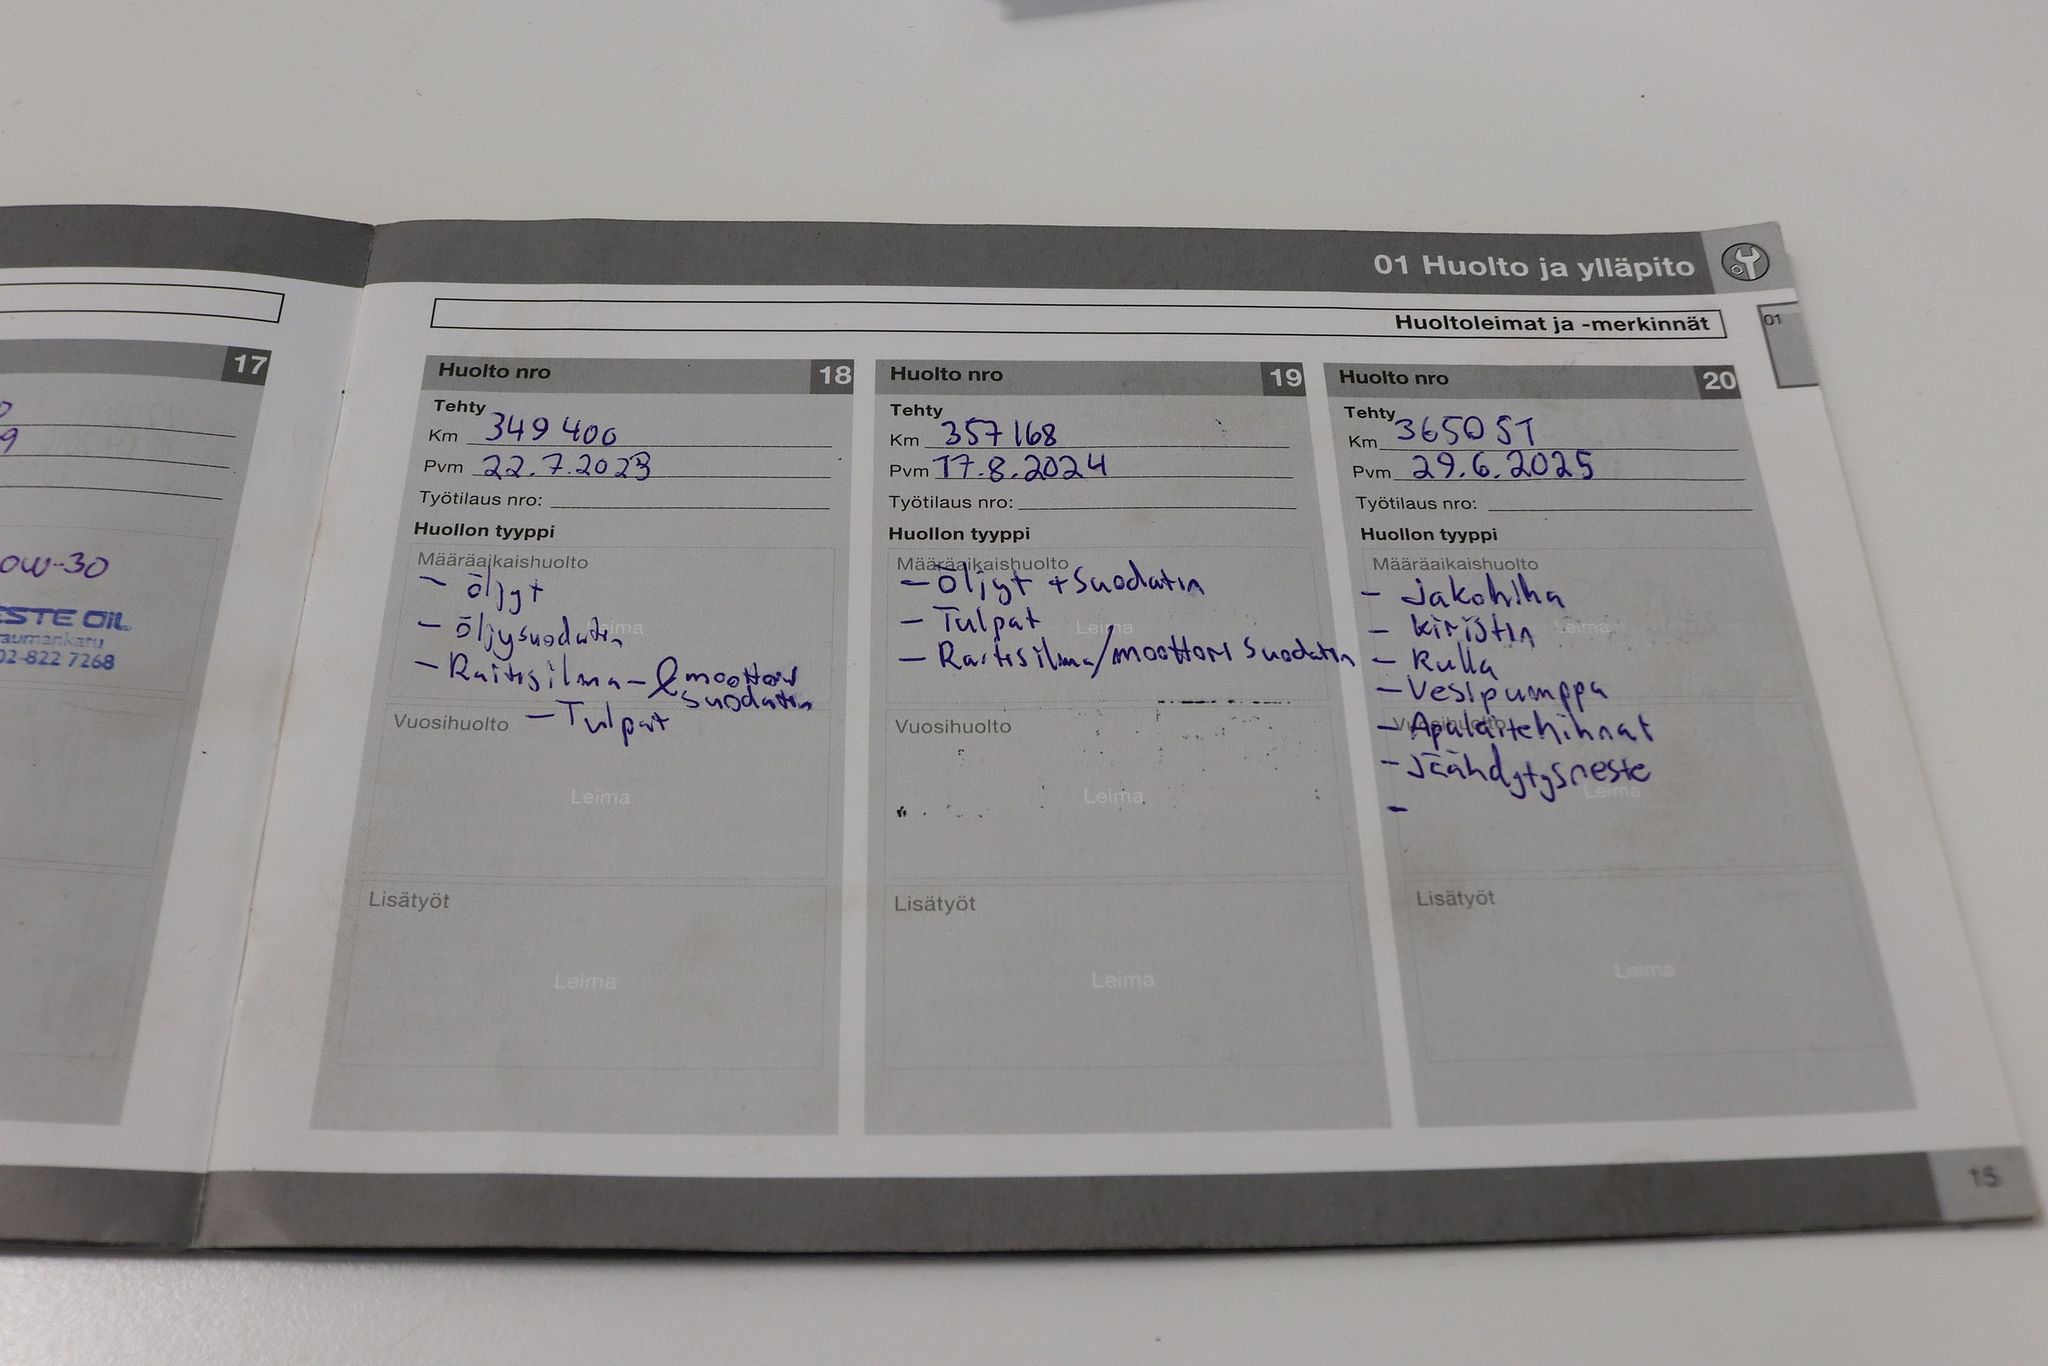 01 Huolto ja ylläpito
Huoltoleimat ja -merkinnät
01
17
9
0W-30
ESTE OIL
raumankatu
02-822 7268
Huolto nro 18
Tehty
Km 349 400
Pvm 22.7.2023
Työtilaus nro:
Huollon tyyppi
Määräaikaishuolto
- öljyt
- öljysuodatin
Leima
- Raitisilma - & moottori
suodatin
Vuosihuolto - Tulpat
Leima
Lisätyöt
Leima
Huolto nro 19
Tehty
Km 357 168
Pvm 17.8.2024
Työtilaus nro:
Huollon tyyppi
Määräaikaishuolto
- Öljyt + suodatin
- Tulpat
Leima
- Raitisilma/moottori suodatin
Vuosihuolto
Leima
Lisätyöt
Leima
Huolto nro 20
Tehty
Km 365051
Pvm 29.6.2025
Työtilaus nro:
Huollon tyyppi
Määräaikaishuolto
- Jakohihna
- kiristin
Leima
- Rulla
- Vesipumppa
Vuosihuolto
- Apulaitehihnat
- Jäähdytysneste
Leima
-
Lisätyöt
Leima
15